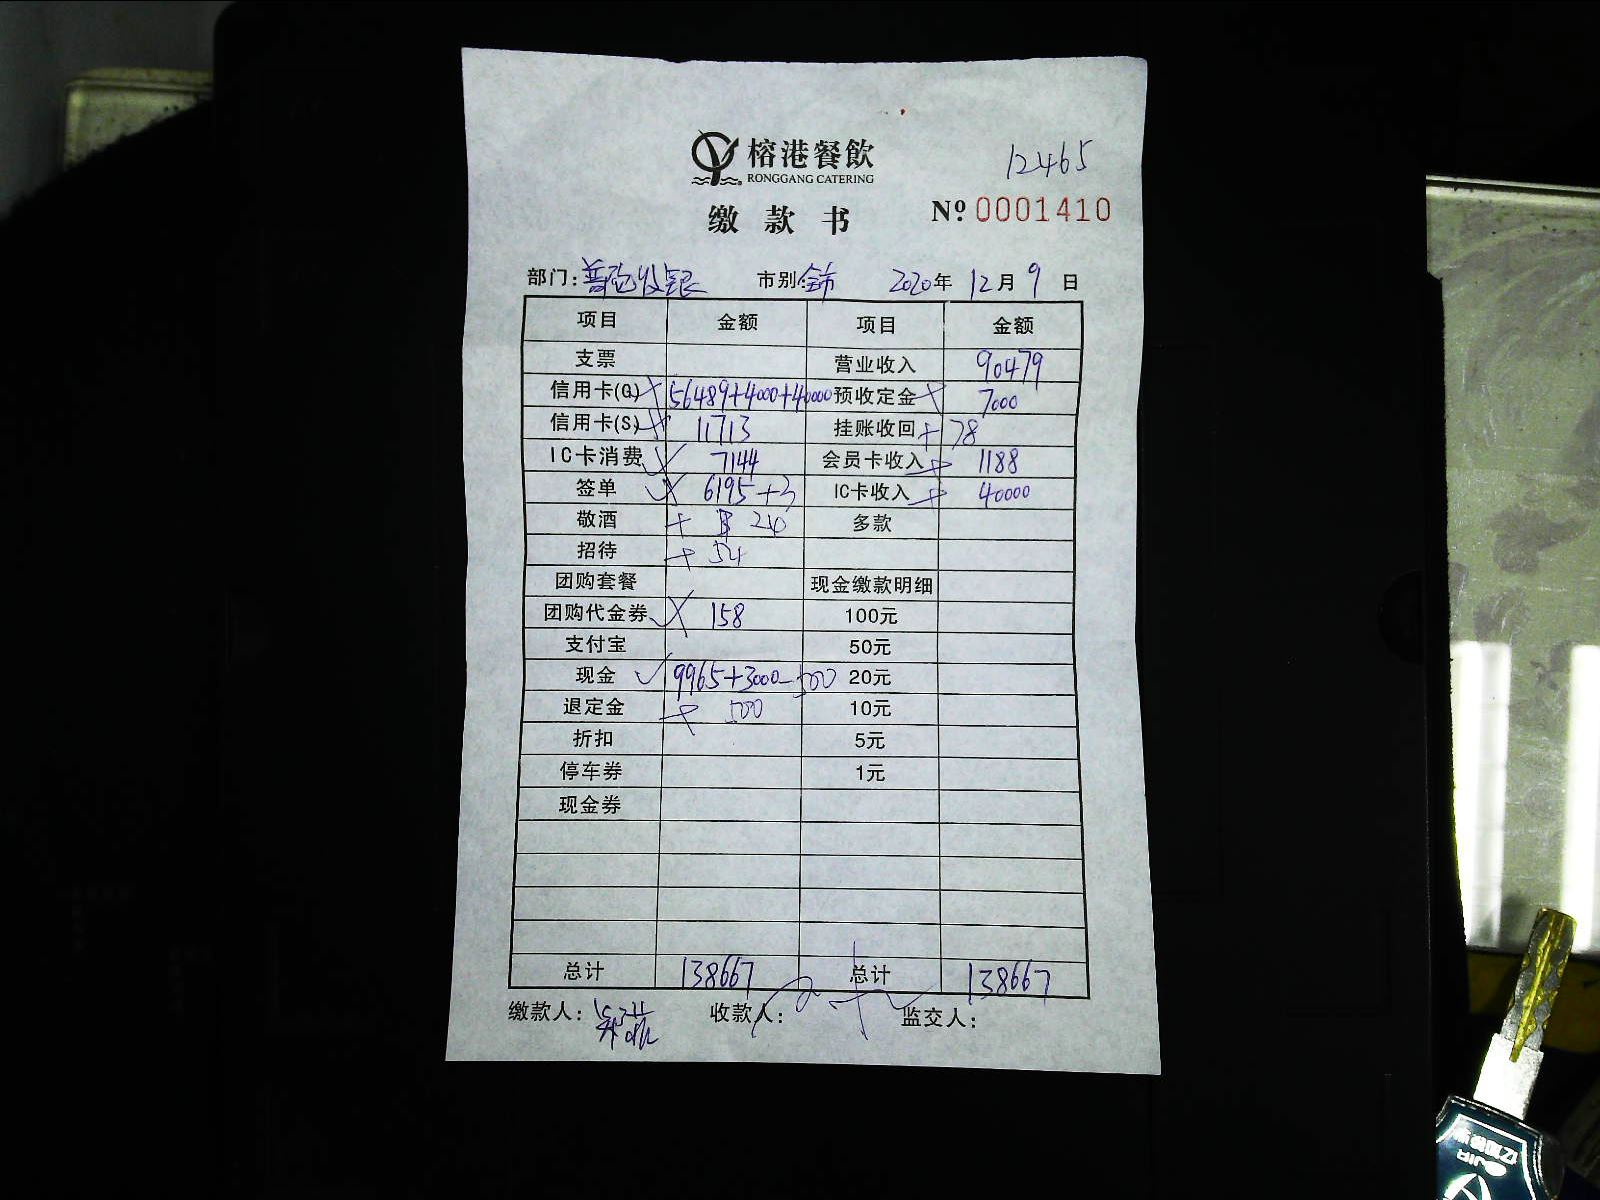 榕港餐飲
RONGGANG CATERING
12465
缴款书
Nº 0001410
部门: 普陀收银 市别: 全市 2020年 12月 9日
项目 金额 项目 金额
支票 营业收入 90479
信用卡(G) 56489+4000+40000 预收定金 7000
信用卡(S) 11713 挂账收回 + 78
IC卡消费 7144 会员卡收入 + 1188
签单 6195+3 IC卡收入 + 40000
敬酒 + 24 多款
招待 + 54
团购套餐 现金缴款明细
团购代金券 158 100元
支付宝 50元
现金 9965+3000-500 20元
退定金 + 500 10元
折扣 5元
停车券 1元
现金券
总计 138667 总计 138667
缴款人: 收款人: 监交人: